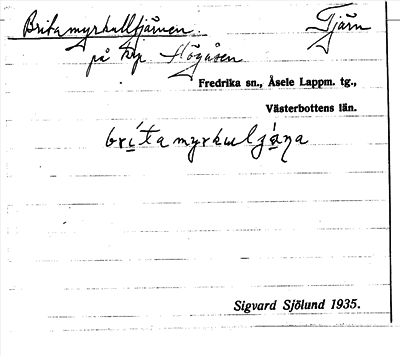 Britamyrkulltjärnen. Tjärn
på krp Högåsen
Fredrika sn., Åsele Lappm. tg.,
Västerbottens län.
britamyrkulʒána
Sigvard Sjölund 1935.